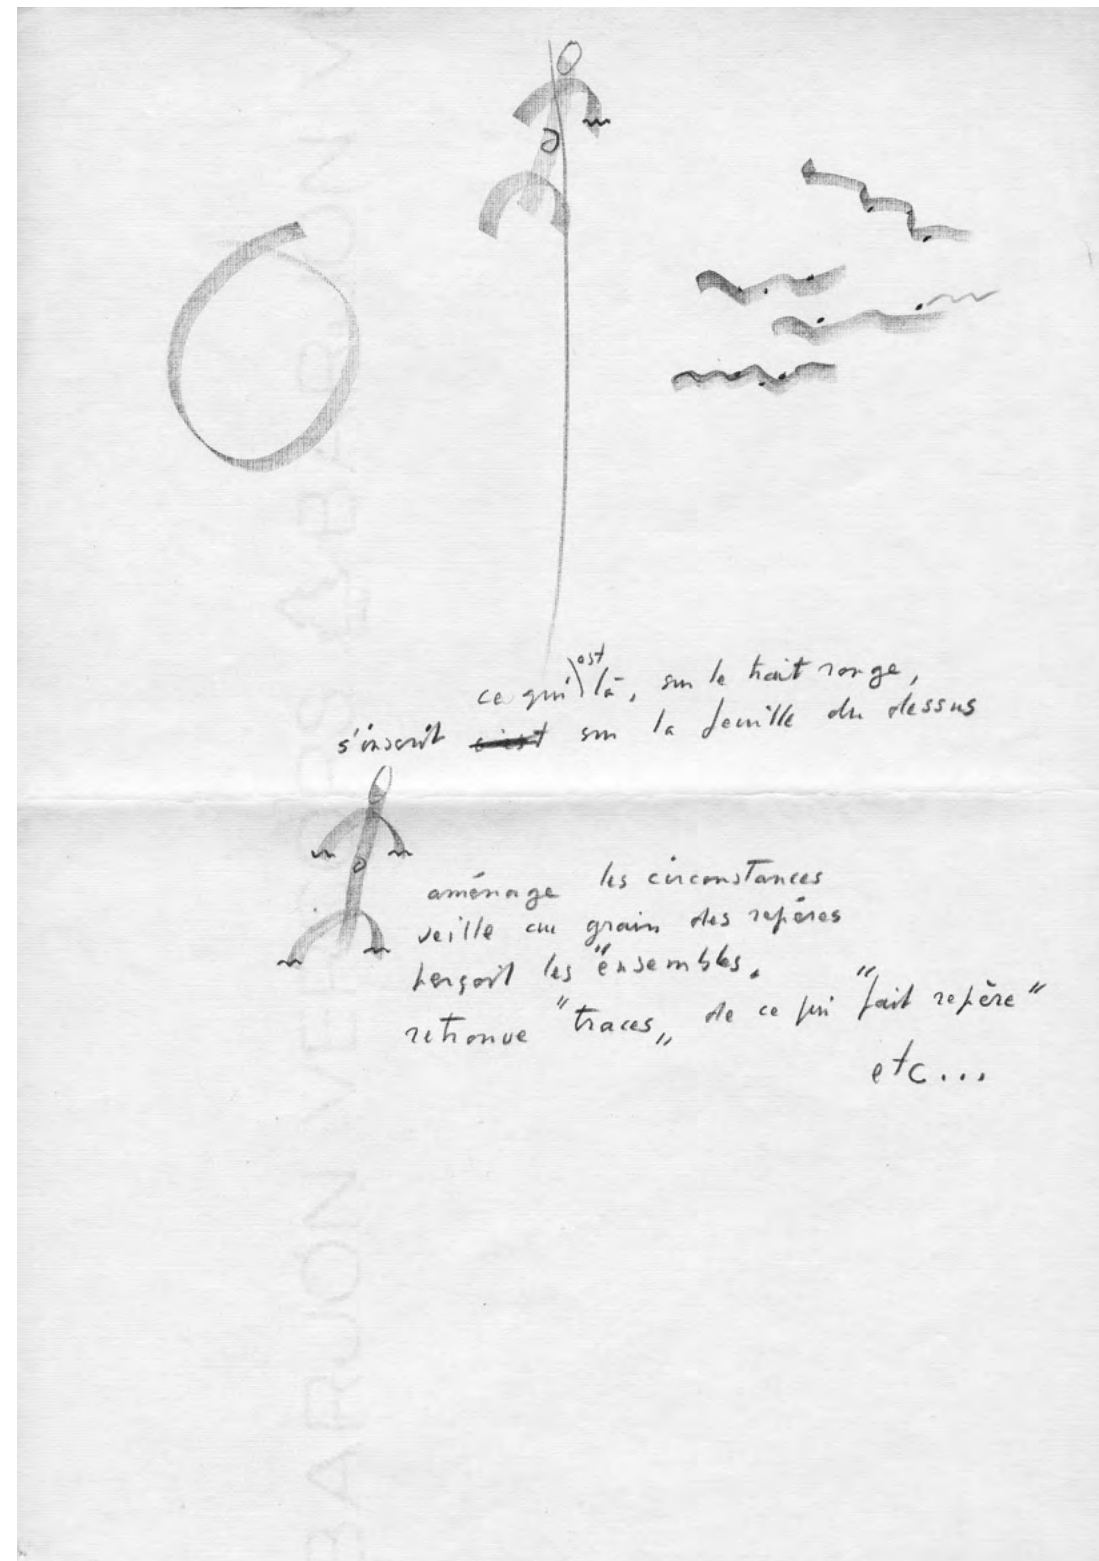 ce qui est là, sur le trait rouge,
s'inscrit sur la feuille du dessus
aménage les circonstances
veille au grain des repères
perçoit les "ensembles"
retrouve "traces" de ce qui "fait repère"
etc...